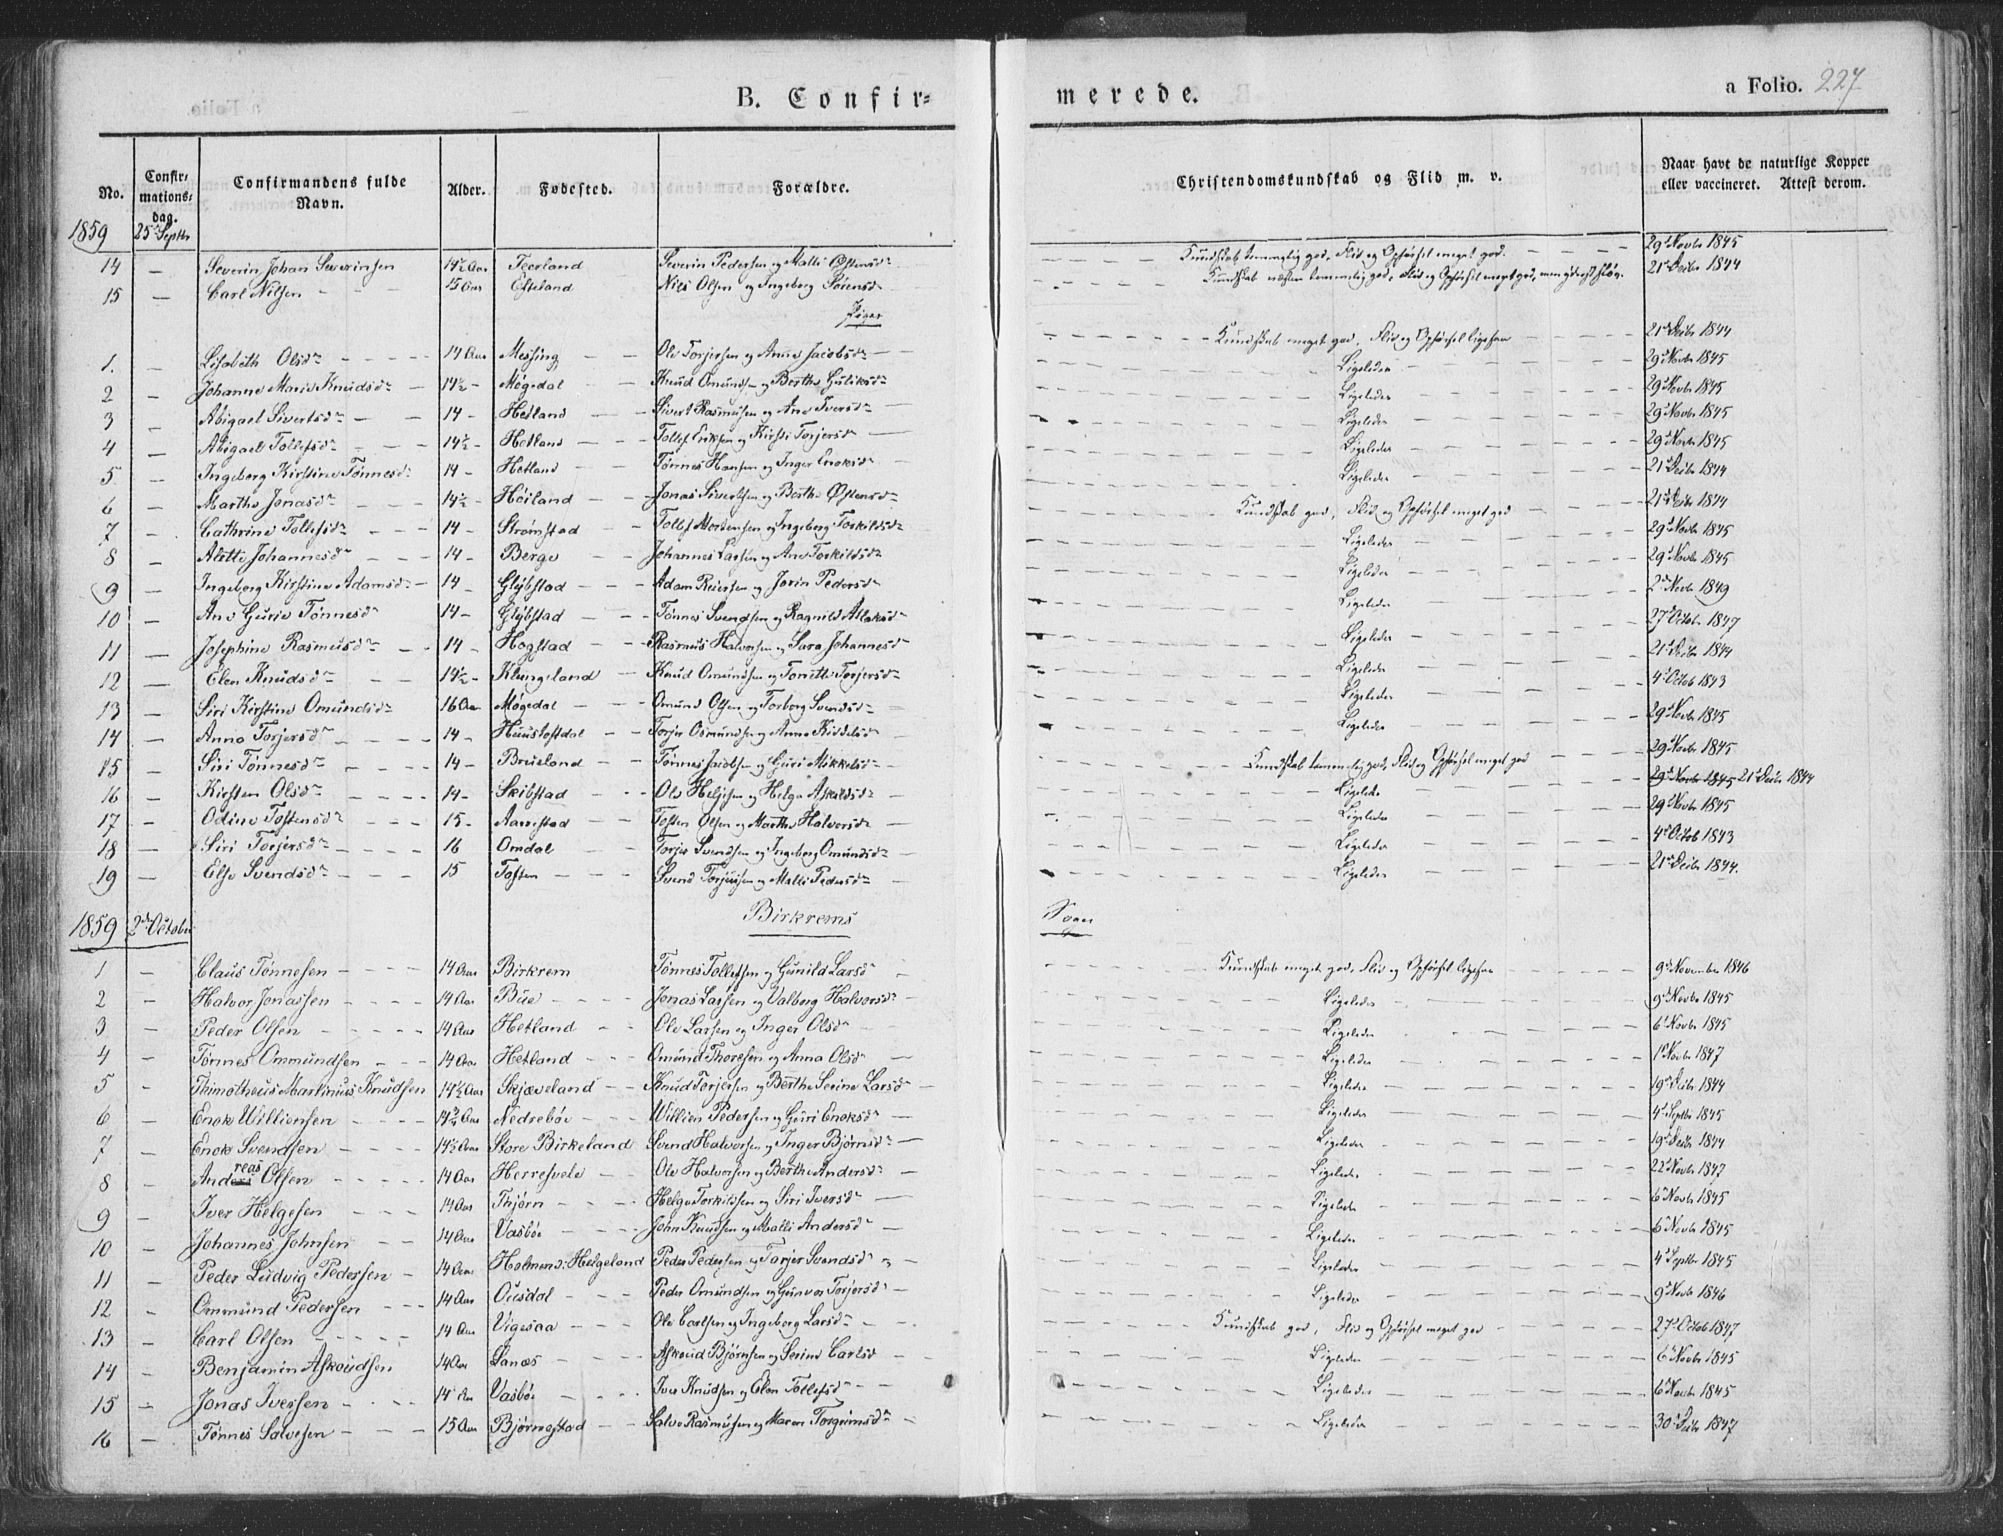 B. Confir=
merede.
a Folio. 227
No. Confir=mations=dag. Confirmandens fulde Navn. Alder. Fødested. Forældre. Christendomskundskab og Flid m. v. Naar havt de naturlige Kopper eller vaccineret. Attest derom.
1859 25de Septbr
14 — Severin Johan Severinsen 14½ Aar Teerland Severin Pedersen og Malli Ostensdr Kundskab temmelig god, Flid og Opførsel meget god. 29 Novbr 1845
15 — Carl Nilsen 15 Aar Efteland Nils Olsen og Ingeborg Sørensd Kundskab næsten temmelig god, Flid og Opførsel meget god, men 21 Decbr 1844
Piger
1. — Lisabeth Olsdr 14 Aar Messing Ole Torjersen og Anne Jacobsdr Kundskab meget god, Flid og Opførsel ligesaa 21 Decbr 1844
2 — Johanne Marie Knudsdr 14½ Møgedal Knud Omundsen og Berthe Guliksdr Ligeledes 29 Novbr 1845
3 — Abigael Sivertsdr 14 Hetland Sivert Rasmussen og Ane Iversdr Ligeledes 29 Novbr 1845
4 — Abigael Tollefsdr 14½ Hetland Tollef Eriksen og Kirsti Torjersdr Ligeledes 29 Novbr 1845
5 — Ingeborg Kirstine Tønnesdr 14 Hetland Tønnes Hansen og Inger Enoksdr Ligeledes 29 Novbr 1845
6 — Marthe Jonasdr 14½ Høiland Jonas Sivertsen og Berthe Østensdr Ligeledes 21 Decbr 1844
7 — Cathrine Tollefsdr 14 Strømstad Tollef Mortensen og Ingeborg Torkildsdr Kundskab god, Flid og Opførsel meget god 21 Decbr 1844
8 — Alette Johannesdr 14 Berge Johannes Larsen og Ane Torkildsdr Ligeledes 29 Novbr 1845
9 — Ingeborg Kirstine Adamsdr 14 Gljbstad Adam Reiersen og Jorin Pedersdr Ligeledes 29 Novbr 1845
10 — Ane Gurie Tønnesdr 14 Gljbstad Tønnes Svendsen og Ragnild Atlaksdr Ligeledes 2 Novb 1849
11 — Josephine Rasmusdr 14 Hogstad Rasmus Halvorsen og Sara Johannesd Ligeledes 27 Octob 1847
12 — Elen Knudsdr 14½ Klungeland Knud Omundsen og Tonette Torjersdr Ligeledes 21 Decbr 1844
13 — Siri Kirstine Omundsdr 16 Aar Møgedal Omund Olsen og Torborg Svendsdr Ligeledes 4 Octob 1843
14 — Anna Torjersdr 14 Torjer Osmundsen og Anne Kiddelsdr Ligeledes 29 Novbr 1845
15 — Siri Tønnesdr 14 Brueland Tønnes Jacobsen og Guri Mikkelsdr Kundskab temmelig god, Flid og Opførsel meget god 29 Novbr 1845
16 — Kirsten Olsdr 14 Skibstad Ole Helgesen og Helga Askildsdr Ligeledes 29 Novbr 1845 21 Decbr 1844
17 — Odine Tostensdr 15 Aarrestad Tosten Olsen og Marthe Halvorsdr Ligeledes 29 Novbr 1845
18 — Siri Torjersdr 16 Omdal Torjer Svendsen og Ingeborg Omundsdr Ligeledes 4 Octob 1843
19 — Else Svendsdr 15 Toften Svend Torjersen og Malli Pedersdr Ligeledes 21 Decbr 1844.
1859 2den October Birkrems Sogn
1 — Claus Tønnesen 14 Aar Birkrem Tønnes Tollefsen og Gunild Larsdr Kundskab meget god, Flid og Opførsel ligesaa 9 November 1846
2 — Halvor Jonassen 14 Aar Bue Jonas Lassen og Valborg Halvorsdr Ligeledes 9 Novbr 1845
3 — Peder Olsen 14 Aar Hetland Ole Larsen og Inger Olsdr Ligeledes 6 Novbr 1845
4 — Tønnes Ommundsen 14 Aar Hetland Omund Thoresen og Anna Olsdr Ligeledes 1 Novbr 1847
5 — Thimotheus Martinius Knudsen 14½ Aar Skjæveland Knud Torjersen og Berthe Serine Larsdr Ligeledes 19 Decbr 1844
6 — Enok Williensen 14½ Aar Nedrebøe Willien Pedersen og Guri Enoksdr Ligeledes 4 Septbr 1845
7 — Enok Svendsen 14½ Aar Store Birkeland Svend Halvorsen og Inger Bjørnsdr Ligeledes 19 Decbr 1844
8 — Andreas Olsen 14 Aar Herresvele Ole Halvorsen og Berthe Andersdr Ligeledes 22 Novbr 1847
9 — Iver Helgesen 14 Aar Thjørn Helge Torkildsen og Siri Iversdr Ligeledes 6 Novbr 1845
10 — Johannes Johnsen 14 Aar Vasbøe John Knudsen og Malli Andersdr Ligeledes 6 Novbr 1845
11 — Peder Ludvig Pedersen 14 Aar Holmen v: Helgeland Peder Pedersen og Torjer Svendsdr Ligeledes 4 Septbr 1845
12 — Ommund Pedersen 14 Aar Ousdal Peder Omundsen og Gunvor Torjersdr Ligeledes 9 Novbr 1846
13 — Carl Olsen 14 Aar Vigesaa Ole Carlsen og Ingeborg Larsdr Kundskab god, Flid og Opførsel meget god 27 Octob 1847
14 — Benjamin Askoudsen 14 Aar Lanæs Askoud Bjørnsen og Serine Carlsd Ligeledes 6 Novbr 1845
15 — Jonas Iversen 14 Aar Vasbøe Iver Knudsen og Elen Tollefsdr Ligeledes 6 Novbr 1845
16 — Tønnes Salvesen 15 Aar Bjørnestad Salve Rasmussen og Maren Torgrimsdr Ligeledes 30 Decbr 1847